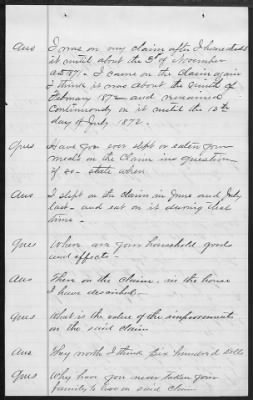 Ans I was on my claim after I
it until about the 3d of November
1871. I came on the claim again
I think it was about the ninth of
February 1872 and remained
Continuously on it until the 10th
day of July 1872.
Ques Have you ever slept or eaten your
meals on the Claim in question
if so state when
Ans I slept on the claim in June and July
last and eat on it during that
time
Ques Where are your household goods
and effects
Ans There on the claim, in the house
I have described
Ques What is the value of the improvements
on the said claim
Ans They worth I think Six hundred dolls
Ques Why have you never taken your
family to live on said claim